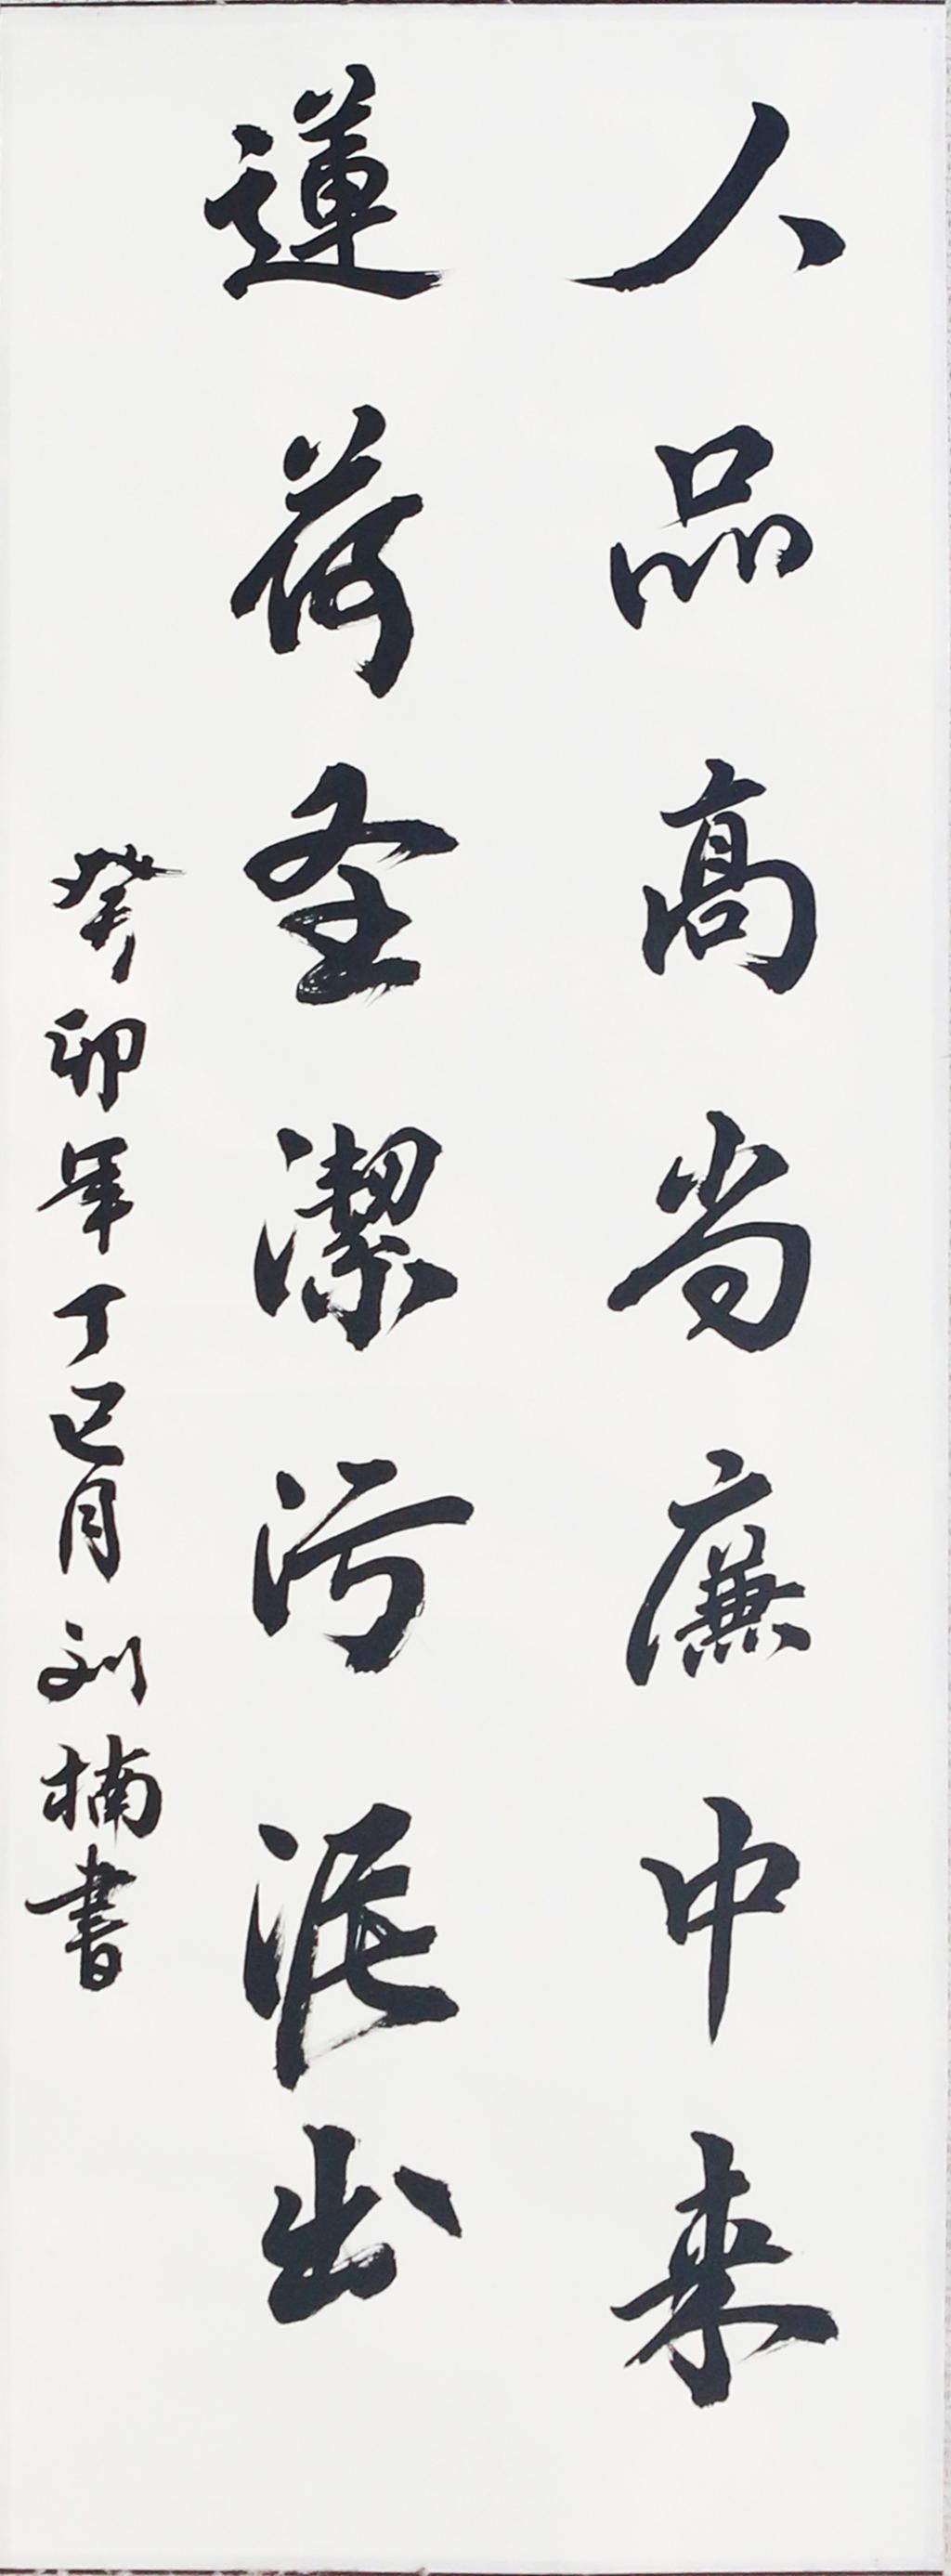 人品高尚廉中来
蓮荷圣潔污泥出
癸卯年丁巳月刘楠書